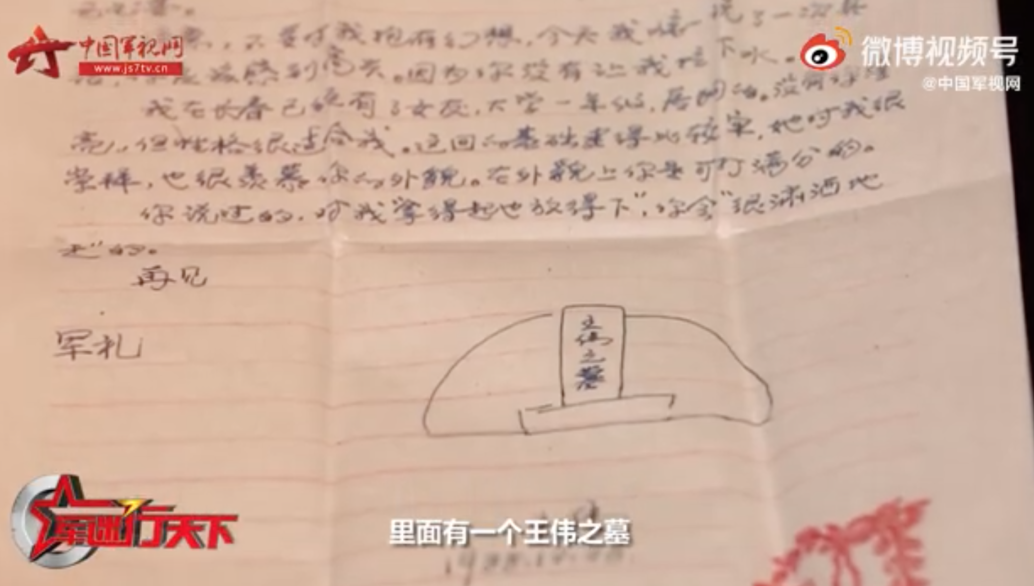 中国军视网
www.js7tv.cn
微博视频号
@中国军视网
不要对我抱有幻想，今天我
因为你没有让我拉下水。
我在长春已经有了女友，大学一年级，没有你漂
亮，但性格很适合我。这回的基础建得比较牢，她对我很
崇拜，也很羡慕你的外貌。在外貌上你是可打满分的。
你说过的，对我“拿得起也放得下”，你会“很潇洒地
走”的。
再见
军礼
王伟之墓
军迷行天下
里面有一个王伟之墓